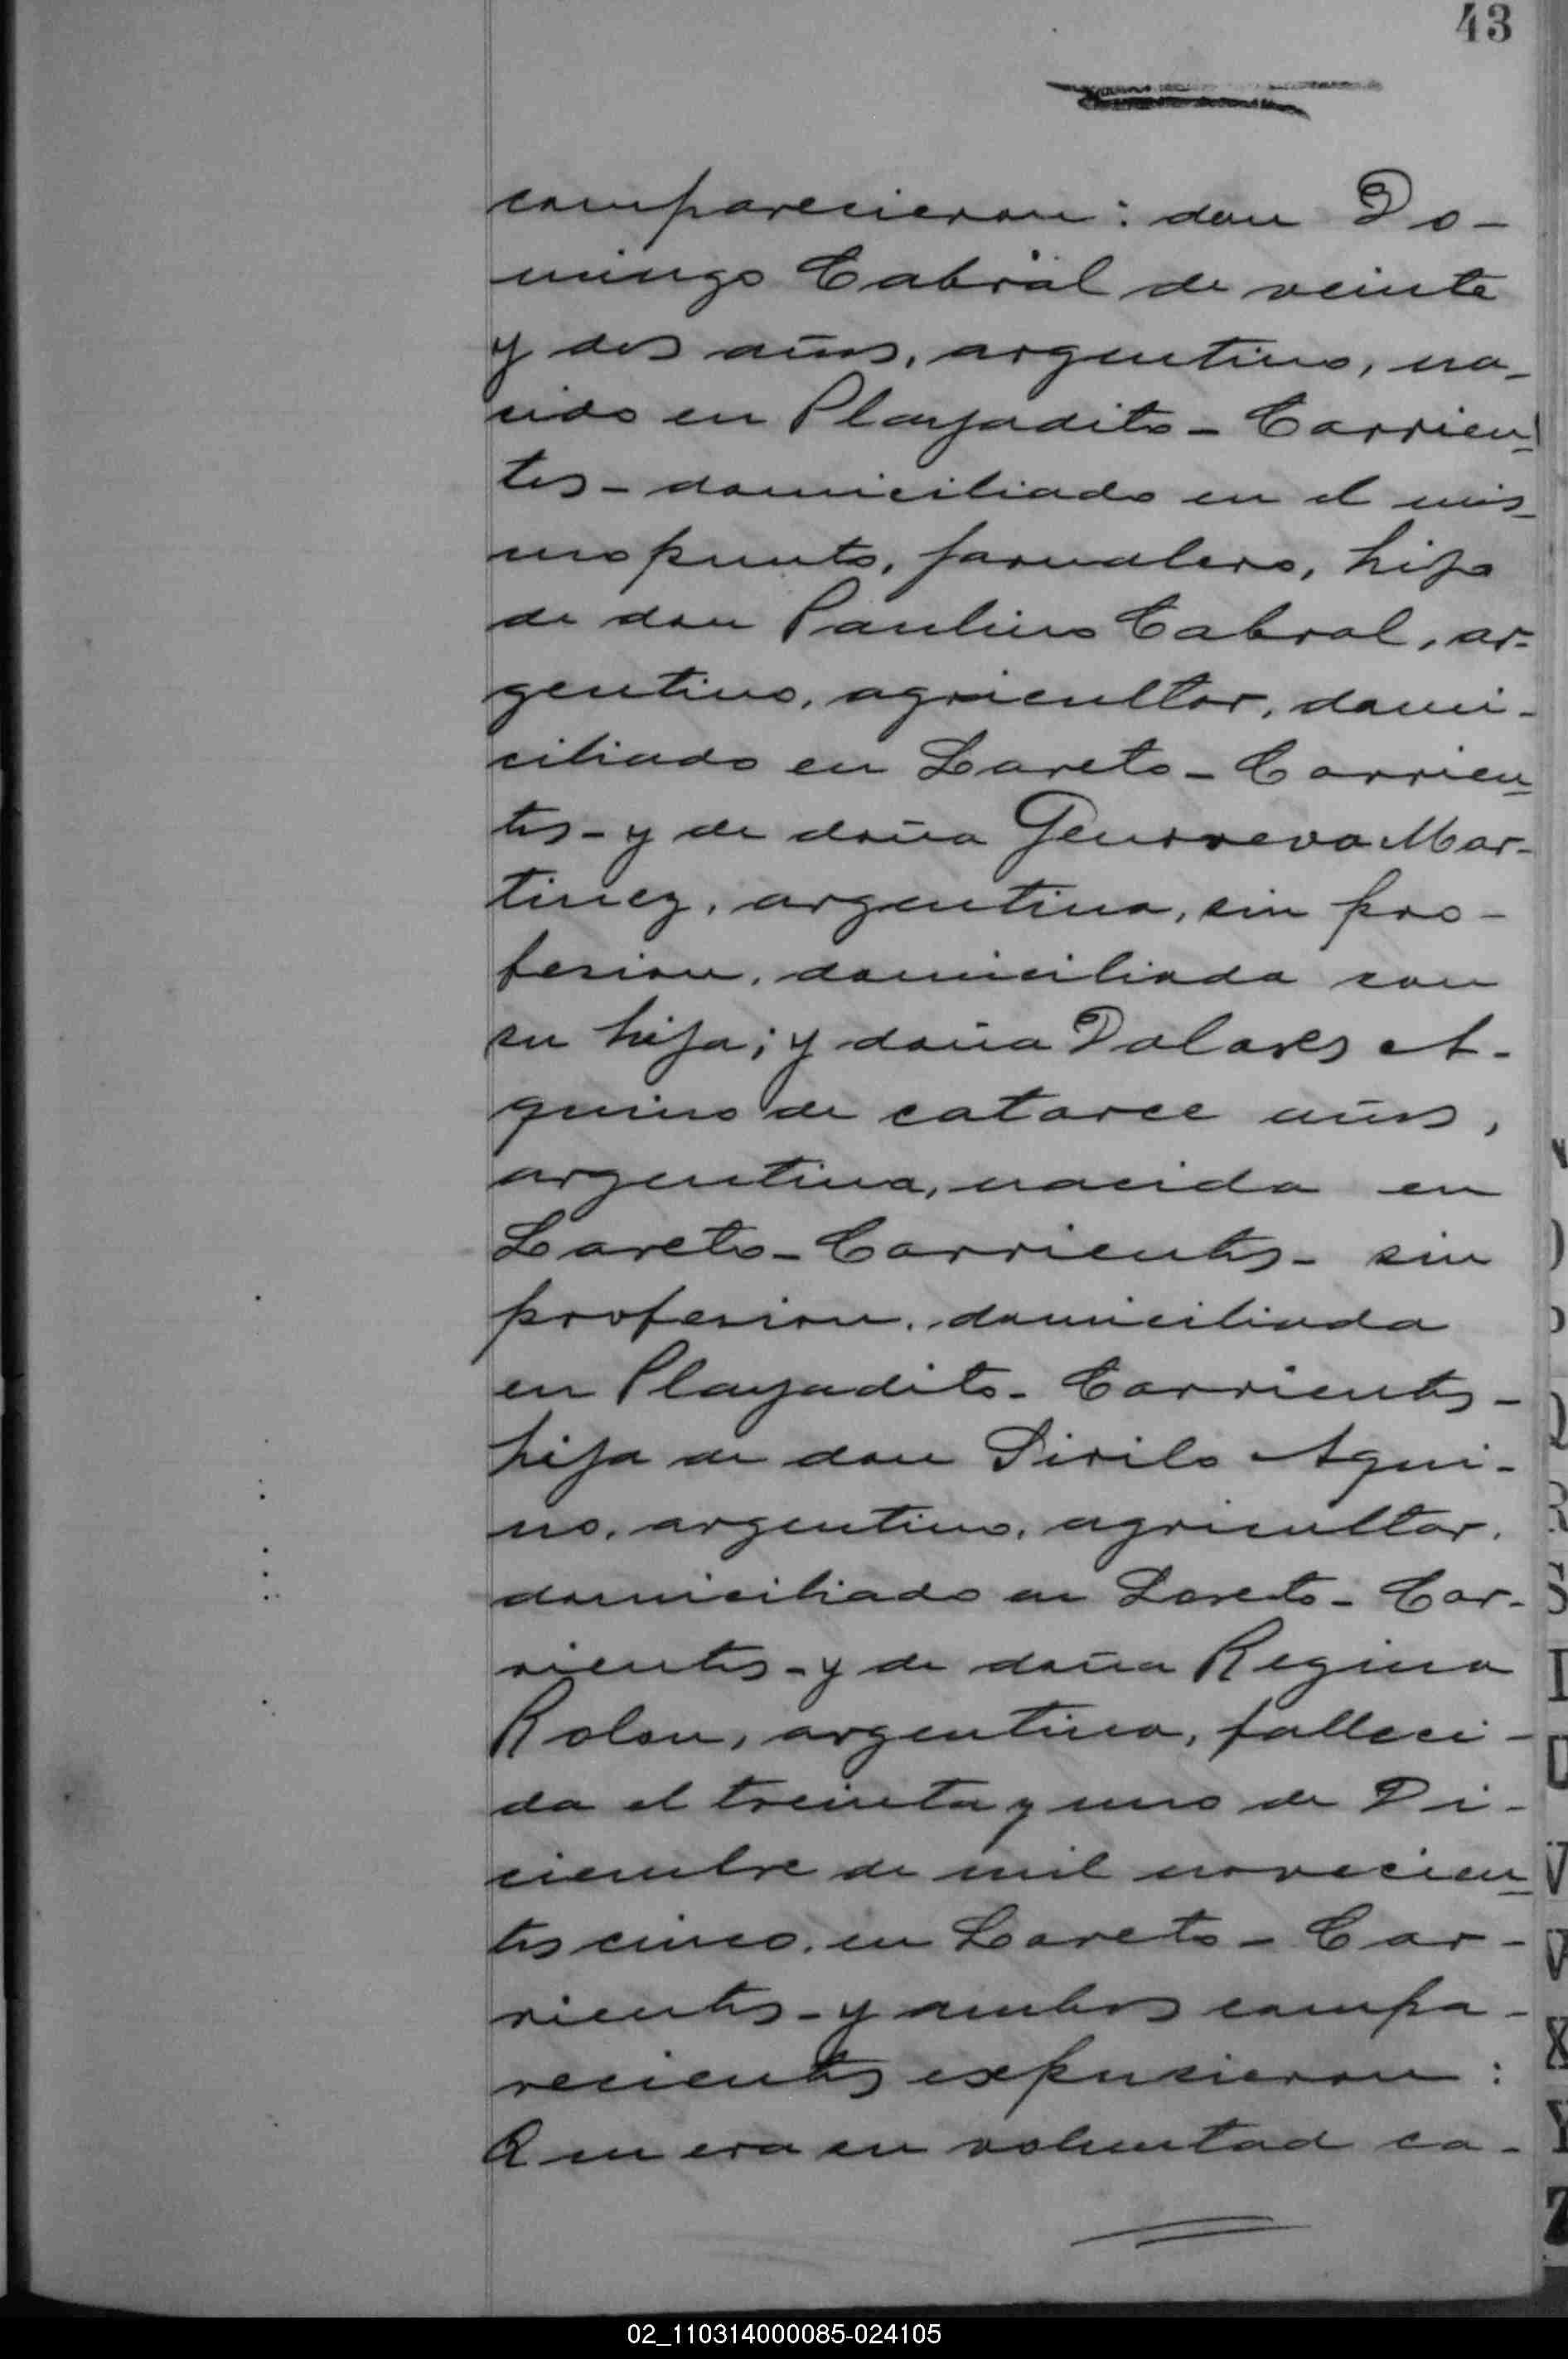 43
comparecieron: don Do-
mingo Cabral de veinte
y dos años, argentino, na-
cido en Playadito - Corrien-
tes - domiciliado en el mis-
mo punto, jornalero, hijo
de don Paulino Cabral, ar-
gentino, agricultor, domi-
ciliado en Loreto - Corrien-
tes - y de doña Genoveva Mar-
tinez, argentina, sin pro-
fesion, domiciliada con
su hijo; y doña Dolores A-
quino de catorce años,
argentina, nacida en
Loreto - Corrientes - sin
profesion, domiciliada
en Playadito - Corrientes -
hija de don Sirilo Aqui-
no, argentino, agricultor,
domiciliado en Loreto - Cor-
rientes - y de doña Regina
Rolon, argentina, falleci-
da el treinta y uno de Di-
ciembre de mil novecien-
tos cinco, en Loreto - Cor-
rientes - y ambos compa-
recientes expusieron:
Que era su voluntad ca-
N
O
P
Q
R
S
T
U
V
X
Y
Z
02_110314000085-024105